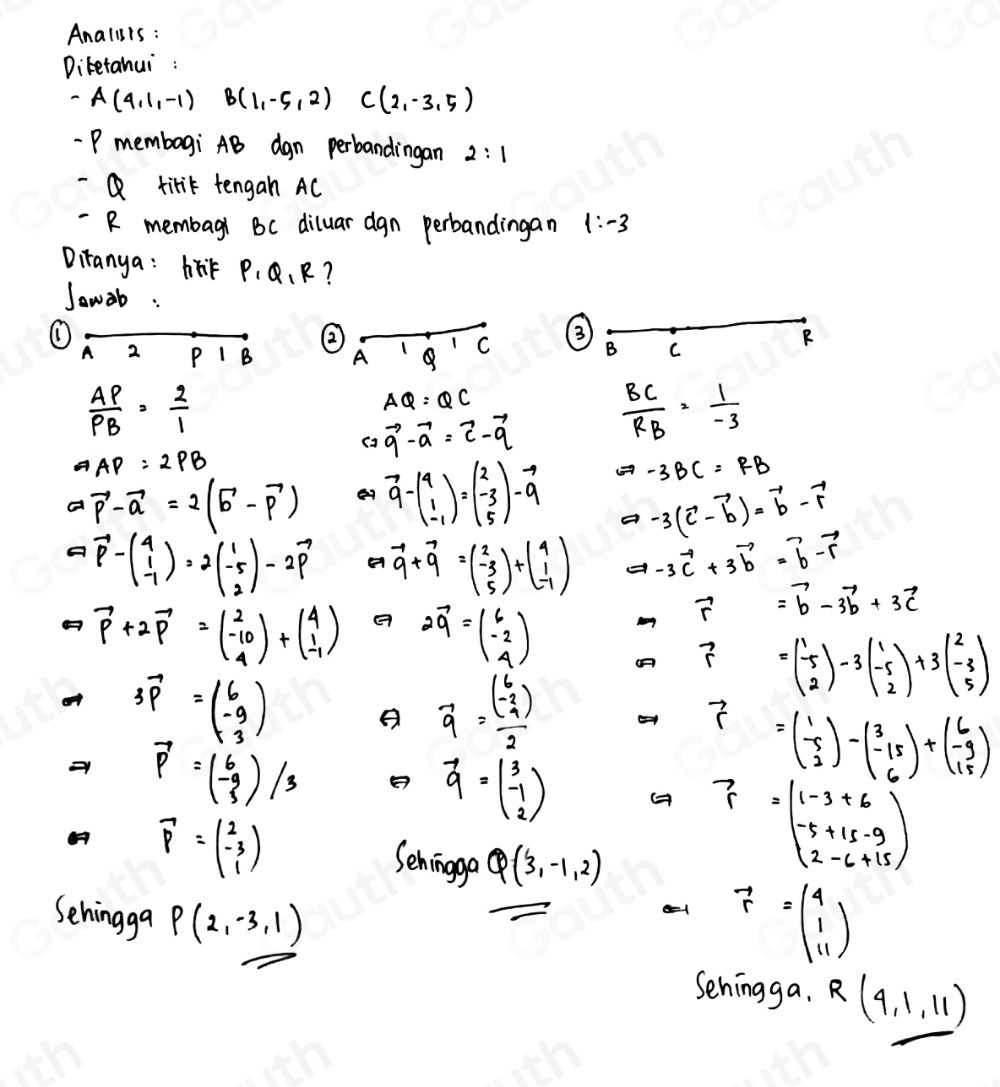 Analisis :
Diketahui :
- A(4,1,-1) B(1,-5,2) C(2,-3,5)
- P membagi AB dgn perbandingan 2:1
- Q titik tengah AC
- R membagi BC diluar dgn perbandingan 1:-3
Ditanya: titik P,Q,R?
Jawab :
①
A 2 P 1 B
AP/PB = 2/1
⇔ AP = 2PB
⇔ p⃗ - a⃗ = 2(b⃗ - p⃗)
⇔ p⃗ - (4 1 -1) = 2(1 -5 2) - 2p⃗
⇔ p⃗ + 2p⃗ = (2 -10 4) + (4 1 -1)
⇔ 3p⃗ = (6 -9 3)
⇔ p⃗ = (6 -9 3) /3
⇔ p⃗ = (2 -3 1)
Sehingga P(2,-3,1)
②
A 1 Q 1 C
AQ = QC
⇔ q⃗ - a⃗ = c⃗ - q⃗
⇔ q⃗ - (4 1 -1) = (2 -3 5) - q⃗
⇔ q⃗ + q⃗ = (2 -3 5) + (4 1 -1)
⇔ 2q⃗ = (6 -2 4)
⇔ q⃗ = (6 -2 4)/2
⇔ q⃗ = (3 -1 2)
Sehingga Q(3,-1,2)
③
B C R
BC/RB = 1/-3
⇔ -3BC = RB
⇔ -3(c⃗ - b⃗) = b⃗ - r⃗
⇔ -3c⃗ + 3b⃗ = b⃗ - r⃗
⇔ r⃗ = b⃗ - 3b⃗ + 3c⃗
⇔ r⃗ = (1 -5 2) - 3(1 -5 2) + 3(2 -3 5)
⇔ r⃗ = (1 -5 2) - (3 -15 6) + (6 -9 15)
⇔ r⃗ = (1-3+6 -5+15-9 2-6+15)
⇔ r⃗ = (4 1 11)
Sehingga, R(4,1,11)